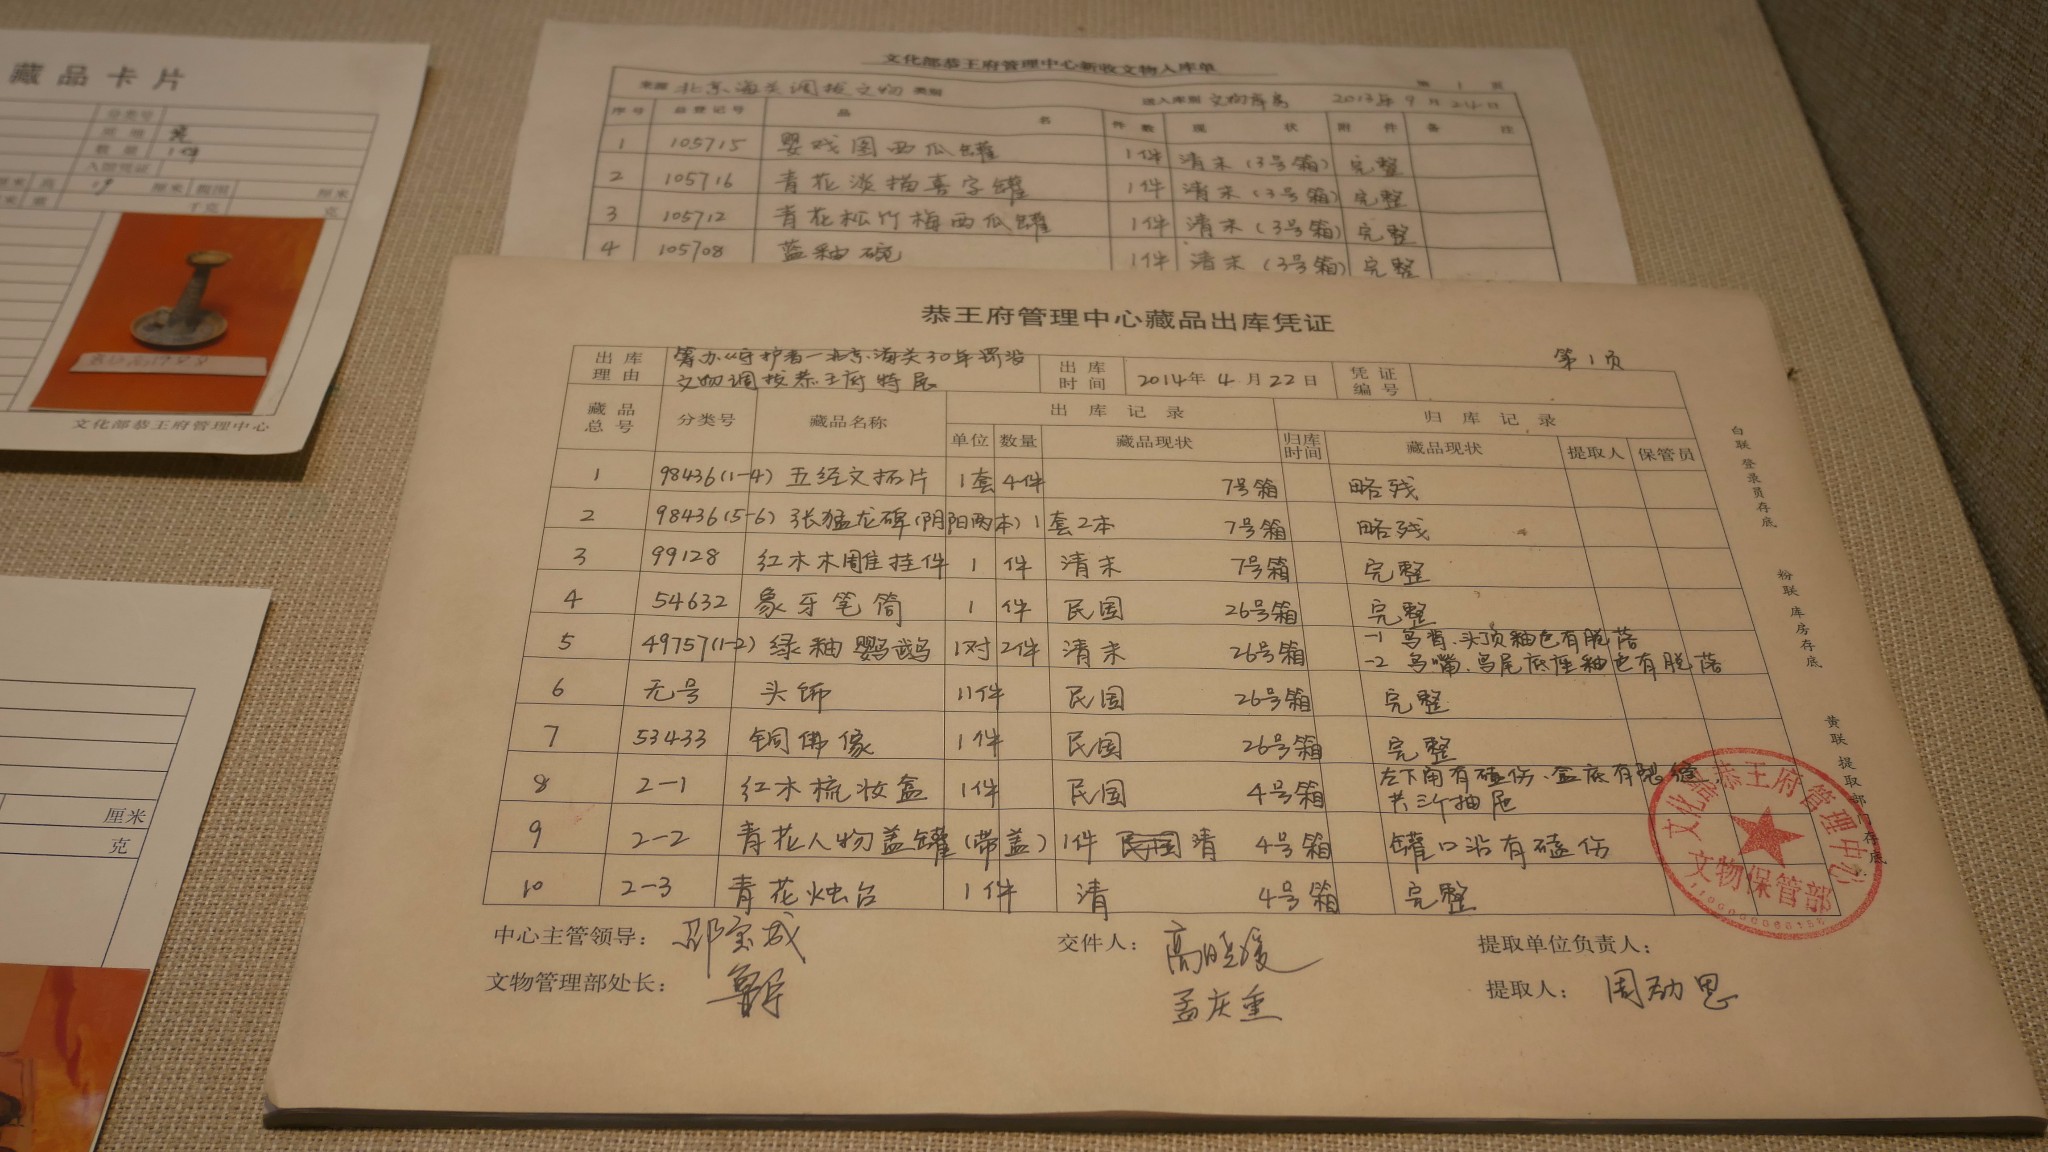 藏品卡片
分类号
质地 瓷
数量 1件
入馆凭证
厘米 高 19 厘米 腹围 厘米
千克 克
文化部恭王府管理中心
厘米
克
文化部恭王府管理中心新收文物入库单
第 1 页
来源 北京海关调拨文物 类别 进入库别 文物库房 2013年9月24日
序号 总登记号 品名 件数 现状 附件 备注
1 105715 婴戏图西瓜罐 1件 清末(3号箱) 完整
2 105716 青花淡描喜字罐 1件 清末(3号箱) 完整
3 105712 青花松竹梅西瓜罐 1件 清末(3号箱) 完整
4 105708 蓝釉碗 1件 清末(3号箱) 完整
恭王府管理中心藏品出库凭证
第1页
出库理由 筹办《守护者—北京海关30年罚没
文物调拨恭王府特展
出库时间 2014年4月22日 凭证编号
藏品总号 分类号 藏品名称 出库记录 归库记录
单位 数量 藏品现状 归库时间 藏品现状 提取人 保管员
1 98436(1-4) 五经文拓片 1套 4件 7号箱 略残
2 98436(5-6) 张猛龙碑(阴阳两本) 1套2本 7号箱 略残
3 99128 红木木雕挂件 1 件 清末 7号箱 完整
4 54632 象牙笔筒 1 件 民国 26号箱 完整
5 49757(1-2) 绿釉鹦鹉 1对 2件 清末 26号箱 -1 鸟背、头顶釉色有脱落
-2 鸟嘴、鸟尾底座釉色有脱落
6 无号 头饰 11件 民国 26号箱 完整
7 53433 铜佛像 1件 民国 26号箱 完整
8 2-1 红木梳妆盒 1件 民国 4号箱 左下角有磕伤、盒底有裂缝、
共三个抽屉
9 2-2 青花人物盖罐(带盖) 1件 民国 清 4号箱 罐口沿有磕伤
10 2-3 青花烛台 1件 清 4号箱 完整
白联 登录员存底
粉联 库房存底
黄联 提取部门存底
文化部恭王府管理中心
文物保管部
中心主管领导: 交件人: 高晓媛 提取单位负责人:
文物管理部处长: 孟庆重 提取人: 周劲思